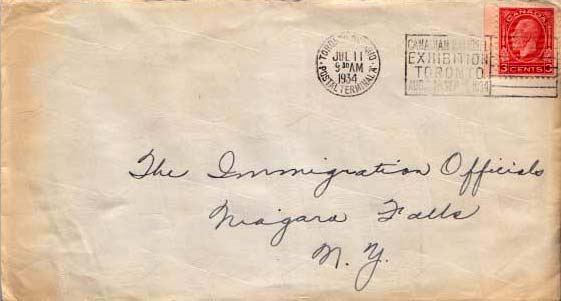 TORONTO ONTARIO
JUL 11
9 30 AM
1934
POSTAL TERMINAL A
CANADIAN
EXHIBITION
TORONTO
1934
CANADA
3 CENTS 3
The Immigration Officials
Niagara Falls
N. Y.